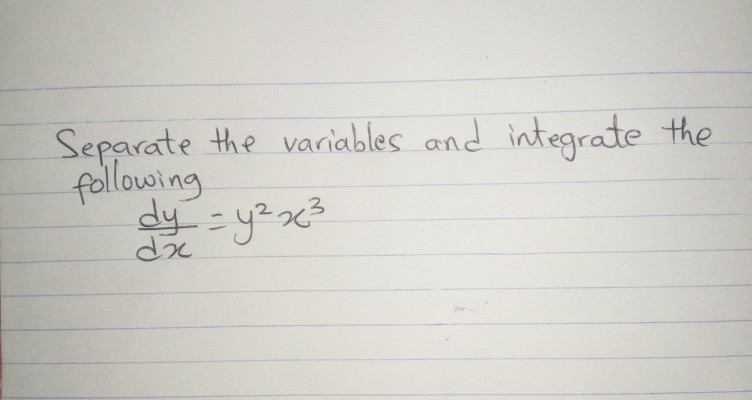 Separate the variables and integrate the
following
dy/dx = y²x³